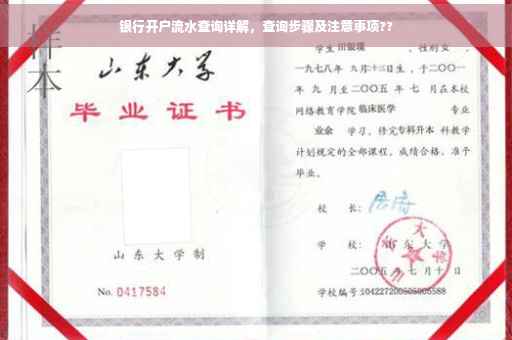 银行开户流水查询详解，查询步骤及注意事项??
样本
山东大学
毕业证书
山东大学制
No. 0417584
学生 田银瑞 ，性别女 ，
一九七八年 九月十三日生，于二〇〇一
年 九 月至二〇〇五 年 七 月在本校
网络教育学院 临床医学 专业
业余 学习，修完 专科升本 科教学
计划规定的全部课程，成绩合格，准予
毕业。
校 长：
学 校：山东大学
二〇〇五年七月十日
学校编号:104227200505005588